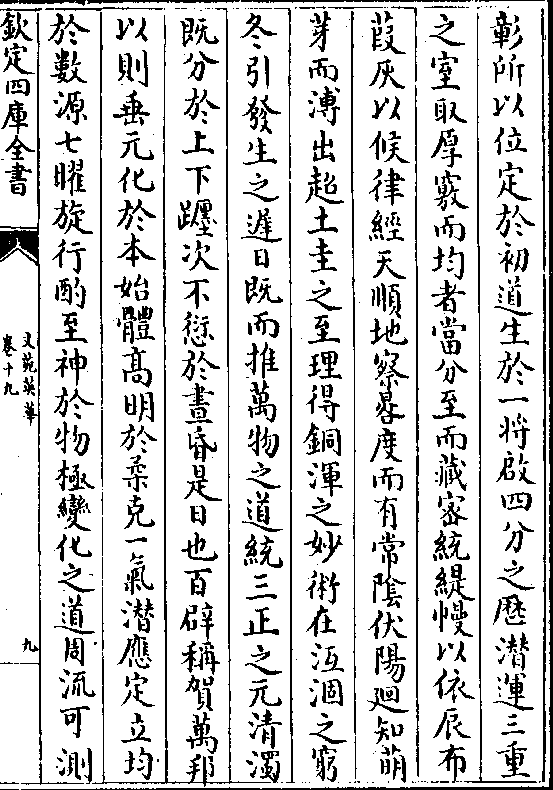 彰所以位定於初道生於一將啟四分之歴潜運三重
之室取厚竅而均者當分至而藏密統緹幔以依辰布
葭灰以候律經天順地察晷度而有常陰伏陽廻知萌
芽而溥出超土圭之至理得銅渾之妙術在沍涸之窮
冬引發生之遲日既而推萬物之道統三正之元清濁
既分於上下躔次不愆於晝昏是日也百辟稱賀萬邦
以則垂元化於本始體髙明於柔克一氣潜應定立均
於數源七曜旋行酌至神於物極變化之道周流可測
欽定四庫全書
文苑英華
卷十九
九